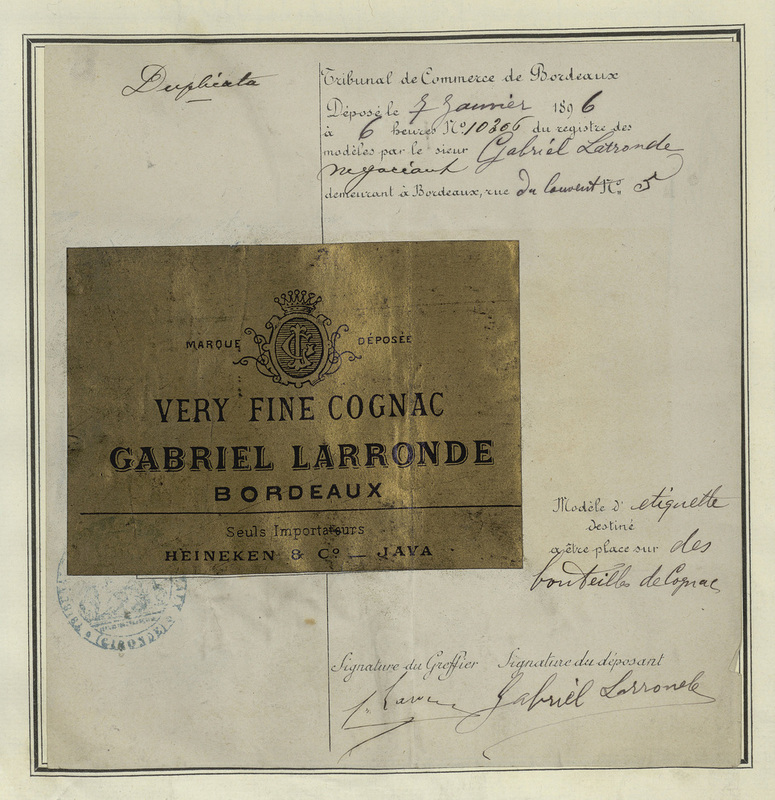 Duplicata
Tribunal de Commerce de Bordeaux
Déposé le 7 Janvier 1896
à 6 heures Nº 10306 du registre des
modèles par le sieur Gabriél Larronde
negociant
demeurant à Bordeaux, rue du Couvent Nº 5
MARQUE DÉPOSÉE
VERY FINE COGNAC
GABRIEL LARRONDE
BORDEAUX
Seuls Importateurs
HEINEKEN & Cº — JAVA
Modèle d' etiquette
destiné
a être place sur des
bouteilles de Cognac
(GIRONDE)
Signature du Greffier Signature du déposant
Gabriél Larronde